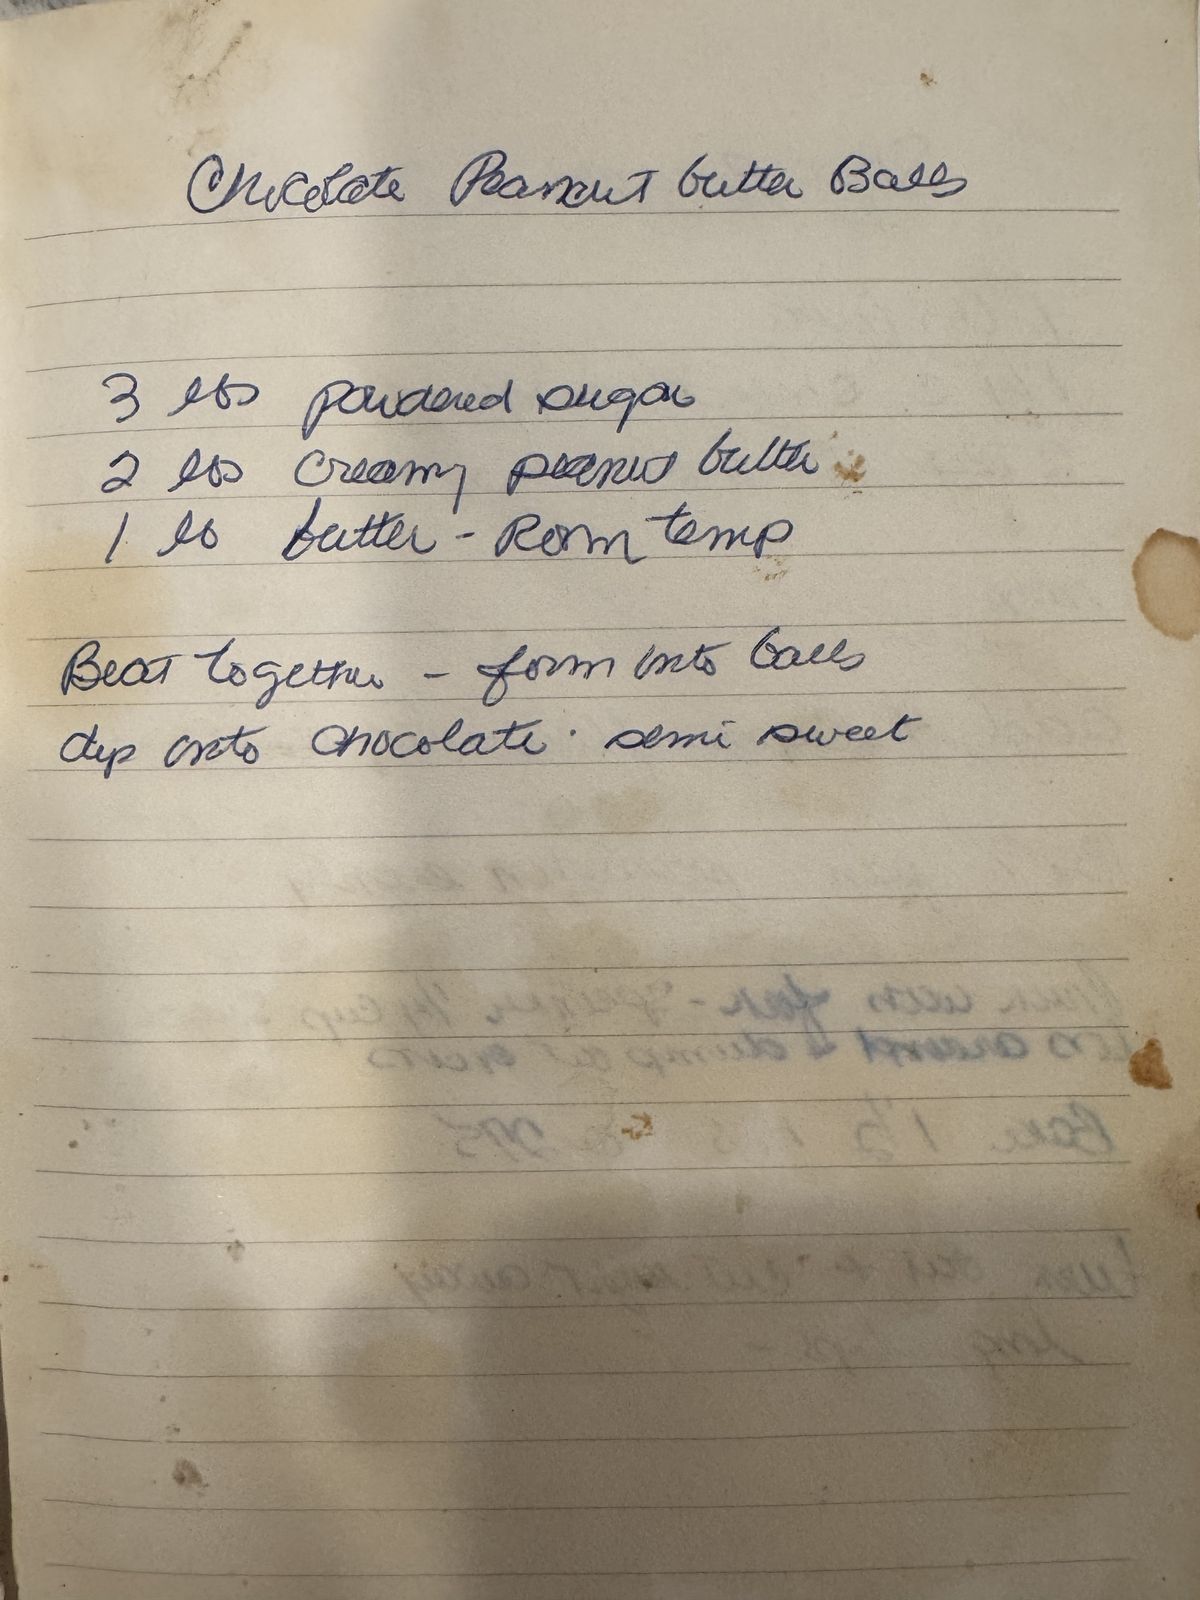 Chocolate Peanut butter Balls
3 lbs powdered sugar
2 lbs creamy peanut butter
1 lb butter - Room temp
Beat together - form into balls
dip into chocolate · semi sweet